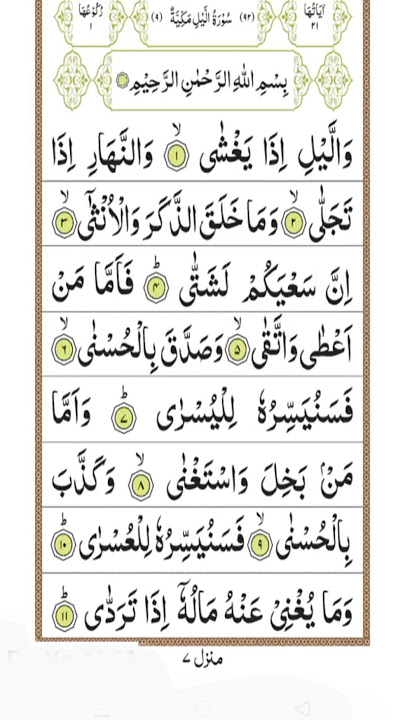 اٰیَاتُهَا ٢١ (٩٢) سُوْرَةُ الَّیْلِ مَكِّیَّةٌ (٩) رُكُوْعُهَا ١
بِسْمِ اللّٰهِ الرَّحْمٰنِ الرَّحِیْمِ
وَالَّیْلِ اِذَا یَغْشٰى ۙ﴿١﴾ وَالنَّهَارِ اِذَا
تَجَلّٰى ۙ﴿٢﴾ وَمَا خَلَقَ الذَّكَرَ وَالْاُنْثٰۤى ۙ﴿٣﴾
اِنَّ سَعْیَكُمْ لَشَتّٰى ؕ﴿۴﴾ فَاَمَّا مَنْ
اَعْطٰى وَاتَّقٰى ۙ﴿۵﴾ وَصَدَّقَ بِالْحُسْنٰى ۙ﴿۶﴾
فَسَنُیَسِّرُهٗ لِلْیُسْرٰى ؕ﴿۷﴾ وَاَمَّا
مَنْۢ بَخِلَ وَاسْتَغْنٰى ۙ﴿۸﴾ وَكَذَّبَ
بِالْحُسْنٰى ۙ﴿۹﴾ فَسَنُیَسِّرُهٗ لِلْعُسْرٰى ؕ﴿۱۰﴾
وَمَا یُغْنِیْ عَنْهُ مَالُهٗۤ اِذَا تَرَدّٰى ؕ﴿۱۱﴾
منزل ٧